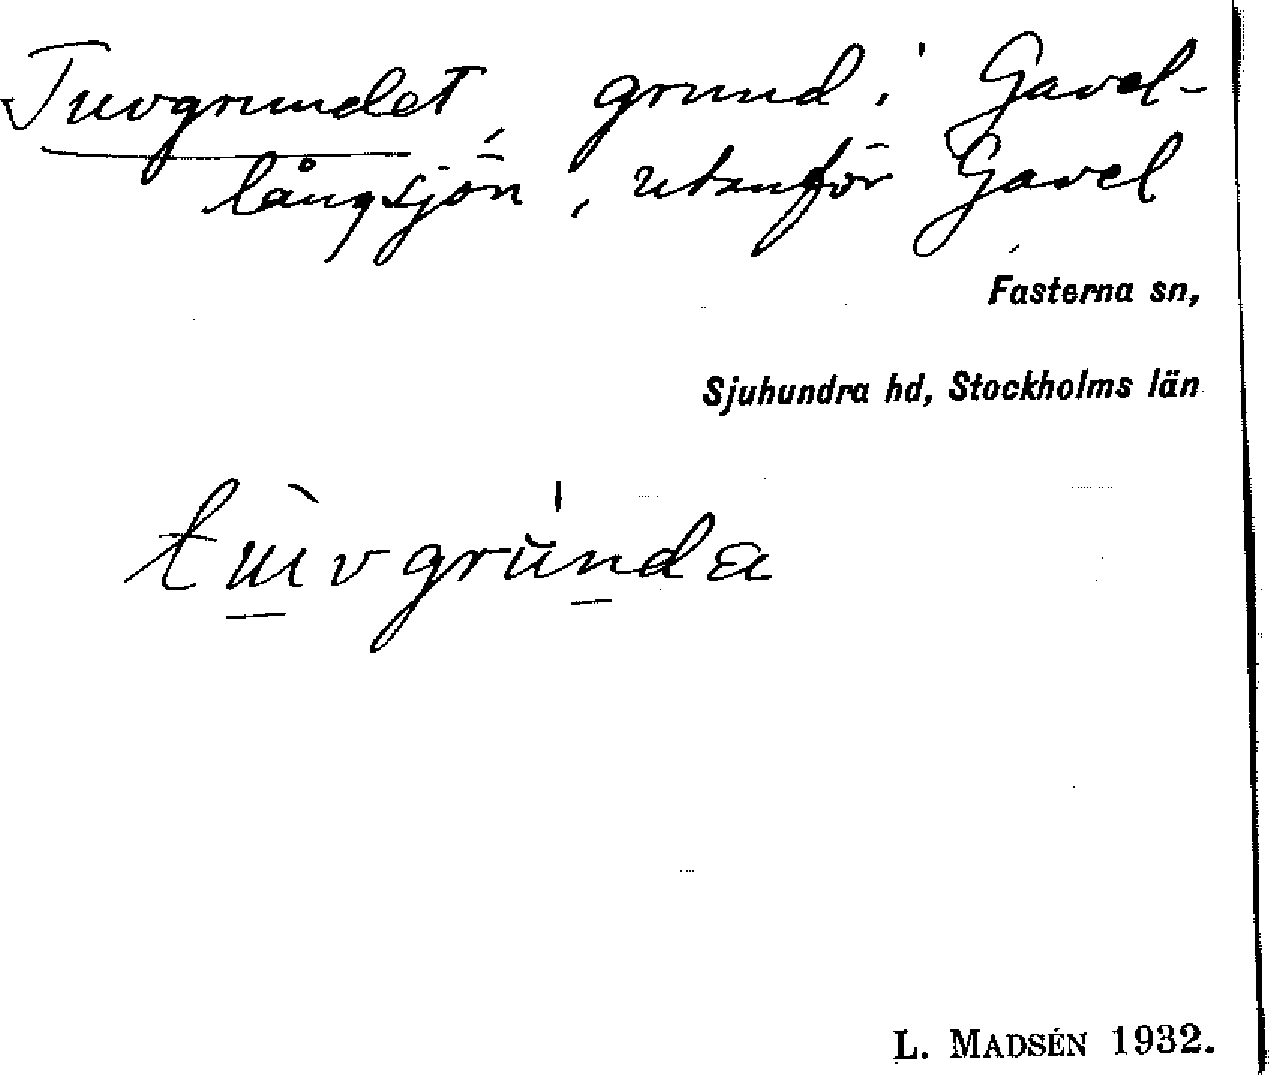 Tuvgrundet, grund i Gavel-
långsjön, utanför Gavel
Fasterna sn,
Sjuhundra hd, Stockholms län
L. MADSÉN 1932.